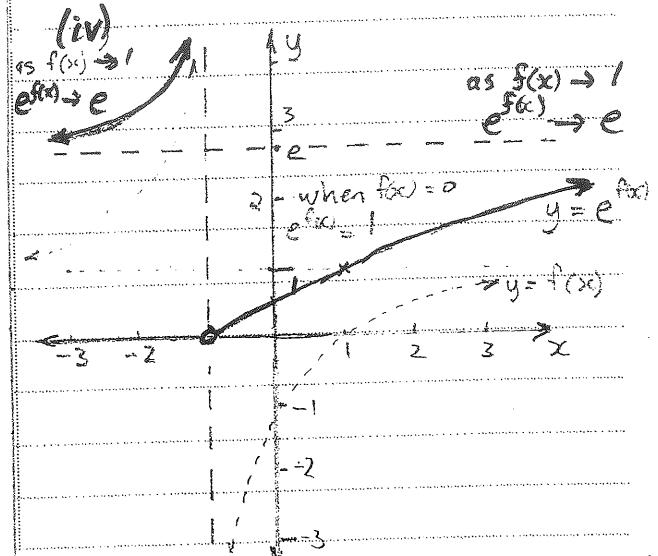 (iv)
as f(x) → 1
e^f(x) → e
y
as f(x) → 1
e^f(x) → e
3
e
2
when f(x) = 0
e^f(x) = 1
y = e^f(x)
1
y = f(x)
-3 -2 1 2 3 x
-1
-2
-3